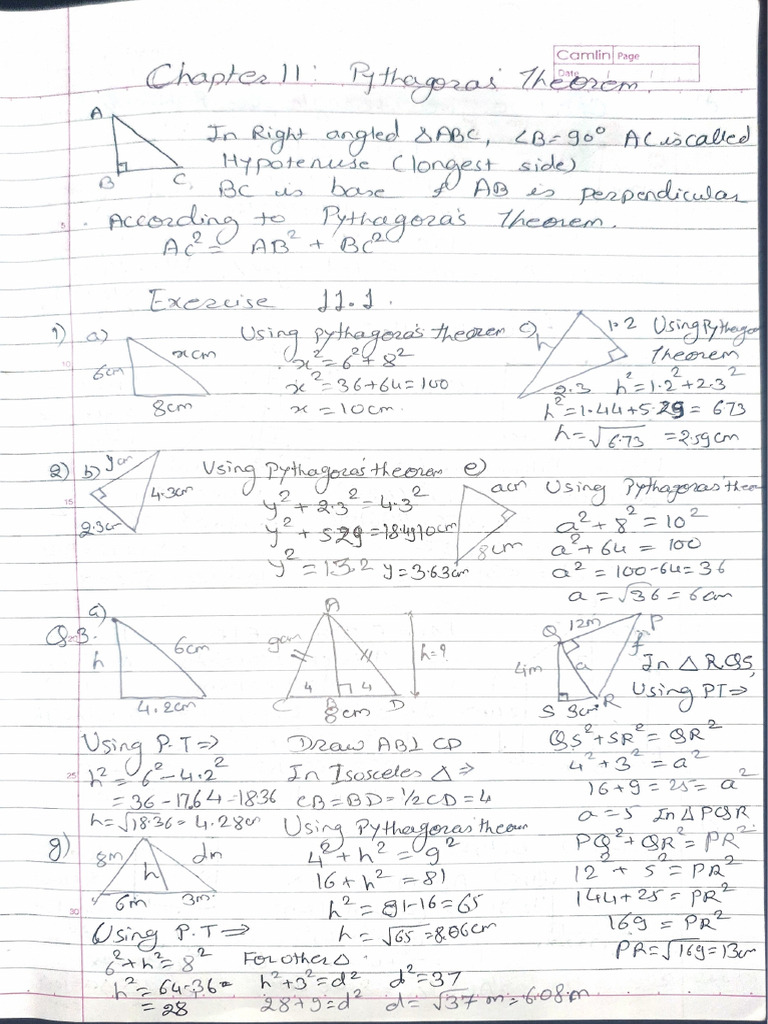 Camlin Page
Date / /
Chapter 11: Pythagoras' Theorem.
A
B
C
In Right angled ΔABC, ∠B=90° AC is called
Hypotenuse (longest side)
BC is base & AB is perpendicular
According to Pythagora's Theorem.
AC² = AB² + BC²
Exercise 11.1.
1) a)
x cm
6cm
8cm
Using pythagora's theorem
x² = 6² + 8²
x² = 36 + 64 = 100
x = 10cm.
c)
h
1.2
2.3
Using Pythago
Theorem
h² = 1.2² + 2.3²
h² = 1.44 + 5.29 = 6.73
h = √6.73 = 2.59cm
2) b)
y cm
4.3cm
2.3cm
Using Pythagora's theorem
y² + 2.3² = 4.3²
y² + 5.29 = 18.49
y² = 13.2 y = 3.63cm
e)
acm
10cm
8cm
Using Pythagora's theo
a² + 8² = 10²
a² + 64 = 100
a² = 100 - 64 = 36
a = √36 = 6cm
Q-3. a)
h
6cm
4.2cm
Using P.T ⇒
h² = 6² - 4.2²
= 36 - 17.64 = 18.36
h = √18.36 = 4.28cm
A
9cm
h = ?
4
4
C
B
D
8cm
Draw AB⊥CD
In Isosceles Δ ⇒
CB = BD = 1/2 CD = 4
Using Pythagoras theom
4² + h² = 9²
16 + h² = 81
h² = 81 - 16 = 65
h = √65 = 8.06cm
12m
P
Q
4m
a
f
S
3cm
R
In Δ RQS,
Using PT ⇒
QS² + SR² = QR²
4² + 3² = a²
16 + 9 = 25 = a²
a = 5 In Δ PQR
PQ² + QR² = PR²
12² + 5² = PR²
144 + 25 = PR²
169 = PR²
PR = √169 = 13cm
g)
8m
h
dm
6m
3m
Using P.T ⇒
6² + h² = 8²
h² = 64 - 36 =
= 28
For other Δ.
h² + 3² = d² d² = 37
28 + 9 = d² d = √37 m = 6.08m